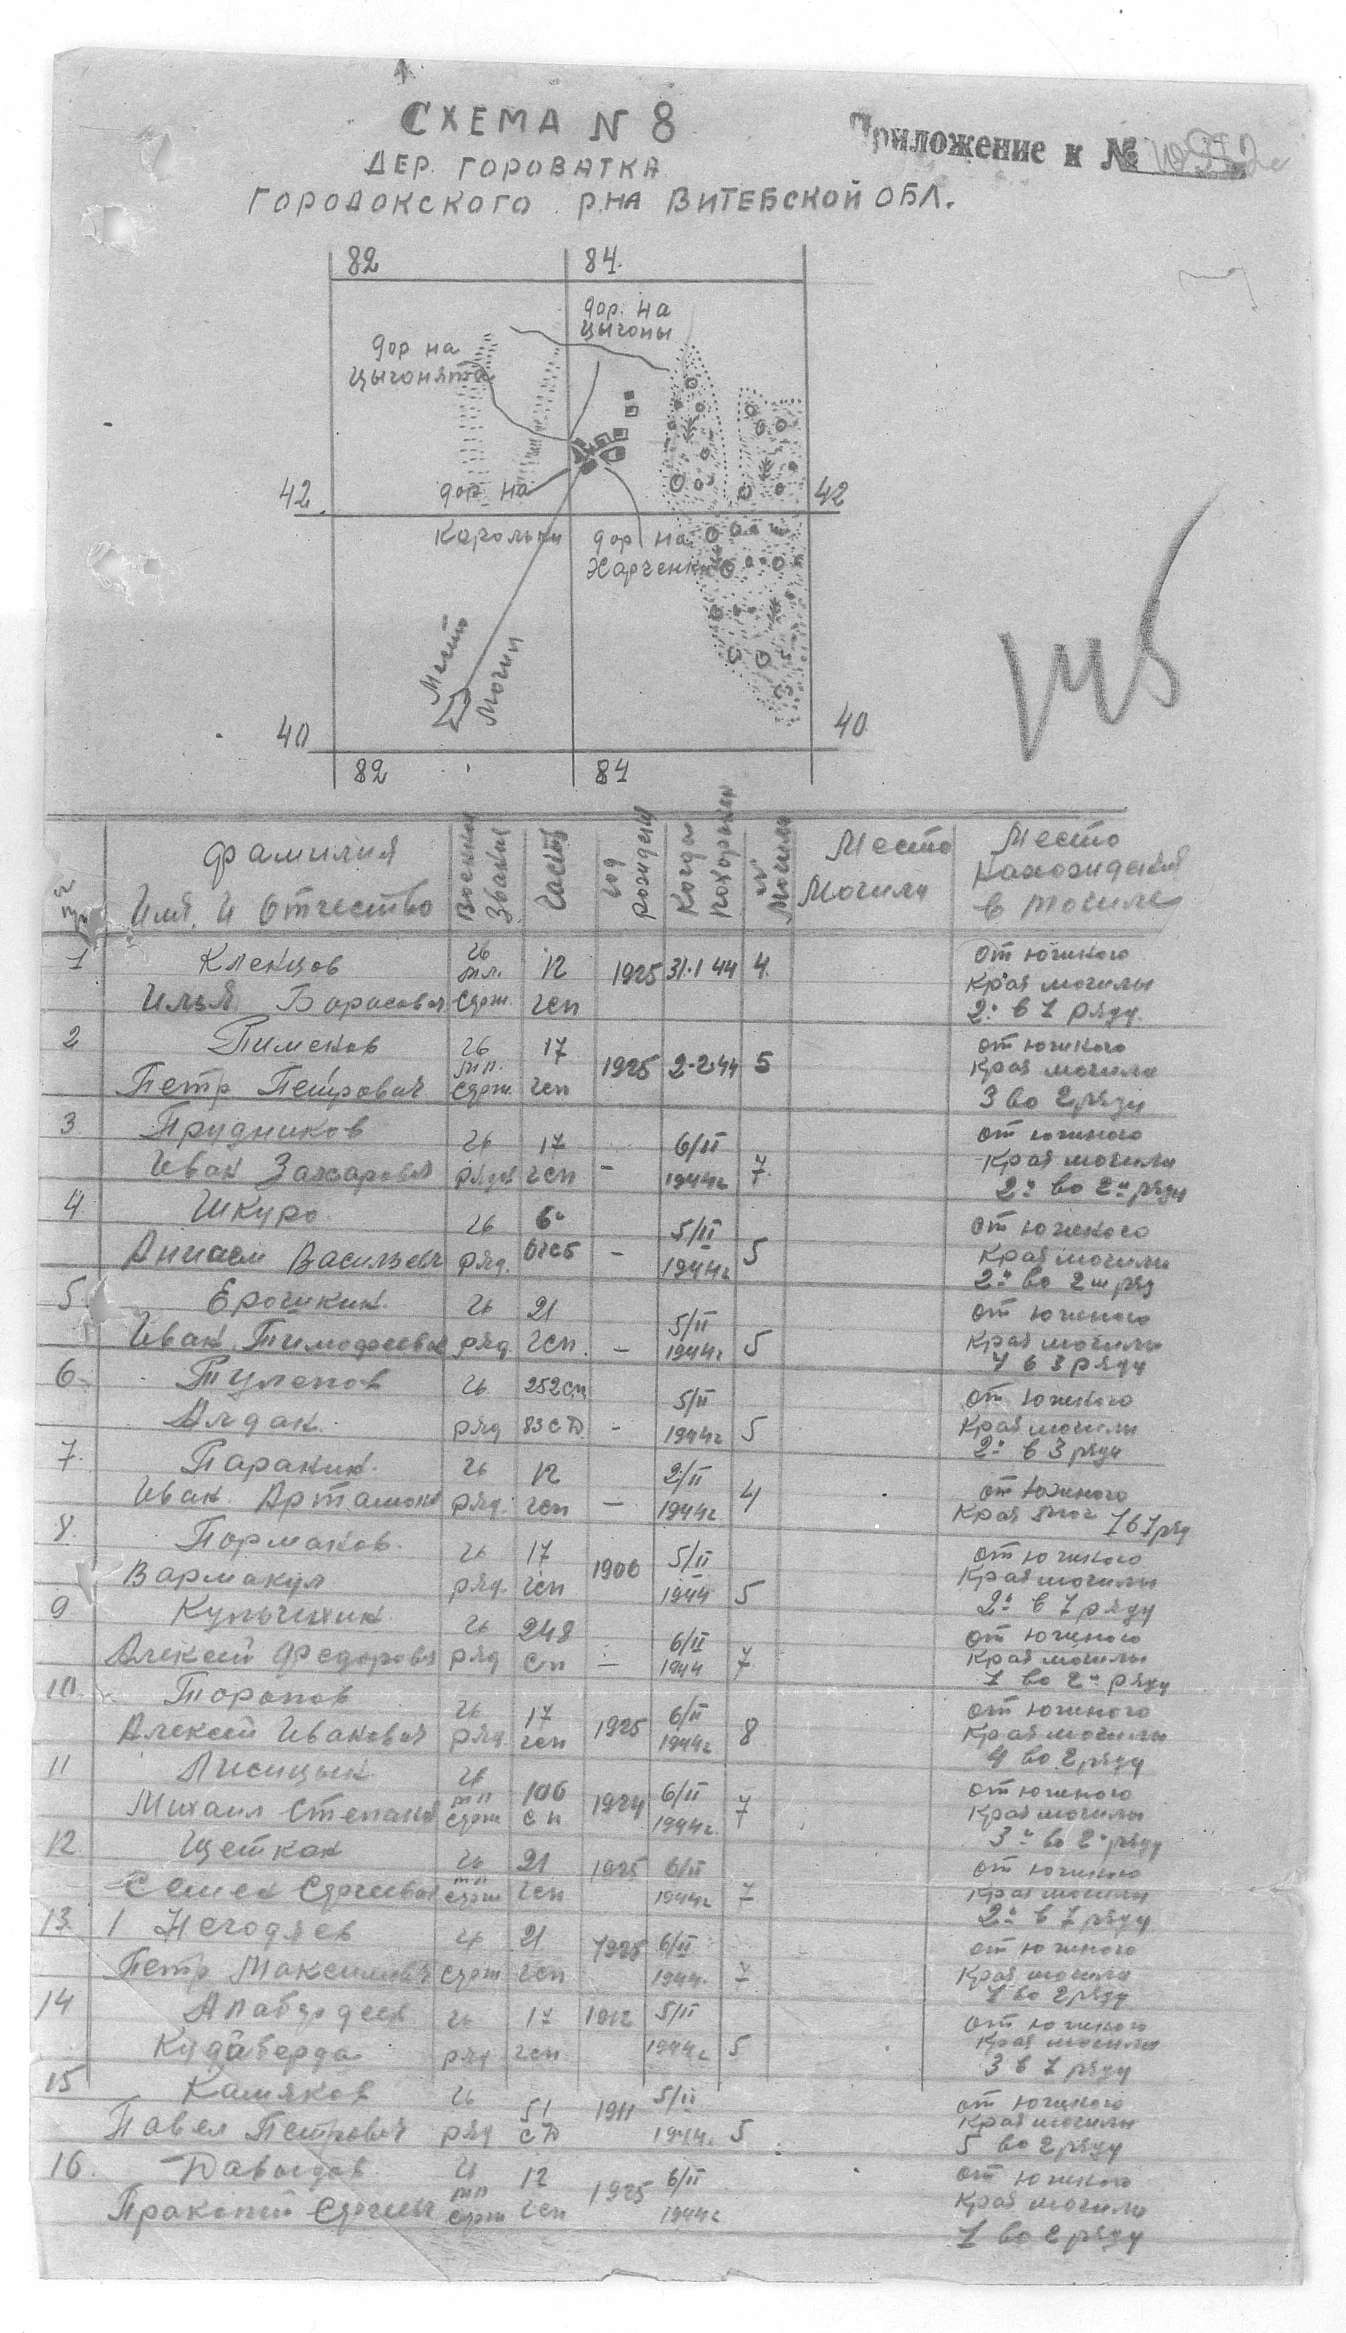 СХЕМА N 8
Приложение к №
ДЕР. ГОРОВАТКА
ГОРОДОКСКОГО Р.НА ВИТЕБСКОЙ ОБЛ.
82 84
дор. на
Цыгоны
дор на
Цыгонята
42 дор. на 42
Карольки дор на
Харченки
Место
Могил
40 40
82 84
Фамилия
Имя, и Отчество
Военная
Звания
Часть
год
рождения
Когда
похоронен
№
Могилы
Место
Могилы
Место
Нахождения
в могиле
1 Кленцов гв мл. сэрж. 12 гсп 1925 31.1 44 4 от южного
Илья Борасович края могилы
2: в 1 ряду.
2 Пименов гв мл. сэрж. 17 гсп 1925 2-2.44 5 от южного
Петр Петрович края могила
3 во 2 ряду
3 Прудников гв 17 6/II от южного
Иван Захарович рядов гсп – 1944г 7 края могилы
2й во 2м ряду
4 Шкуро гв 6й 5/II от южного
Васильевич ряд. – 1944г 5 края могилы
2й во 2м ряд
5 Ерошкин гв 21 5/II от южного
Иван Тимофеевич ряд гсп. – 1944г 5 края могилы
в 3 ряду
6 Туленов гв 252сп 5/II от южного
Алдан ряд 83 сд – 1944г 5 края могилы
2й в 3 ряду
7. Паранин гв 12 2/II от южного
Иван Артамон ряд. гсп – 1944г 4 края мог 1 в 1 ряд
8. Пормаков гв 17 1906 5/II от южного
Вармакул ряд. гсп 1944 5 края могилы
2й в 1 ряду
9 Кульчихин гв 248 6/II от южного
Алексей Федорович ряд сп – 1944 7 края могилы
1 во 2м ряду
10 Торопов гв 17 1925 6/II от южного
Алексей Иванович ряд гсп 1944г 8 края могилы
4 во 2 ряду
11 Лисицын гв мл сэрж 106 сп 1924 6/II от южного
Михаил Степанов 1944г. 7 края могилы
3й во 2 ряду
12 Щеткан гв мл сэрж 21 гсп 1925 6/II от южного
Семен Сергеевич 1944г 7 края могилы
2й в 1 ряду
13 Негодяев гв 21 1925 6/II от южного
Петр Максимович сэрж гсп 1944. 7 края могила
1 во 2 ряду
14 Алабердеев гв 17 1912 5/II от южного
Кудаберда ряд гсп 1944г 5 края могилы
3 в 1 ряду
15 Камяков гв 51 1911 5/II от южного
Павел Петрович ряд сд 1944г. 5 края могилы
5 во 2 ряду
16. Давыдов гв мл сэрж 12 гсп 1925 6/II от южного
Пракопий 1944г края могилы
1 во 2 ряду